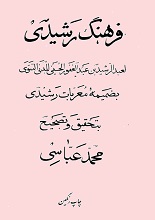 فرهنگ رشیدی
لعبد الرشید بن عبد الغفور الحسینی المدنی التتوی
بضمیمهٔ معربات رشیدی
بتحقیق و تصحیح
محمد عباسی